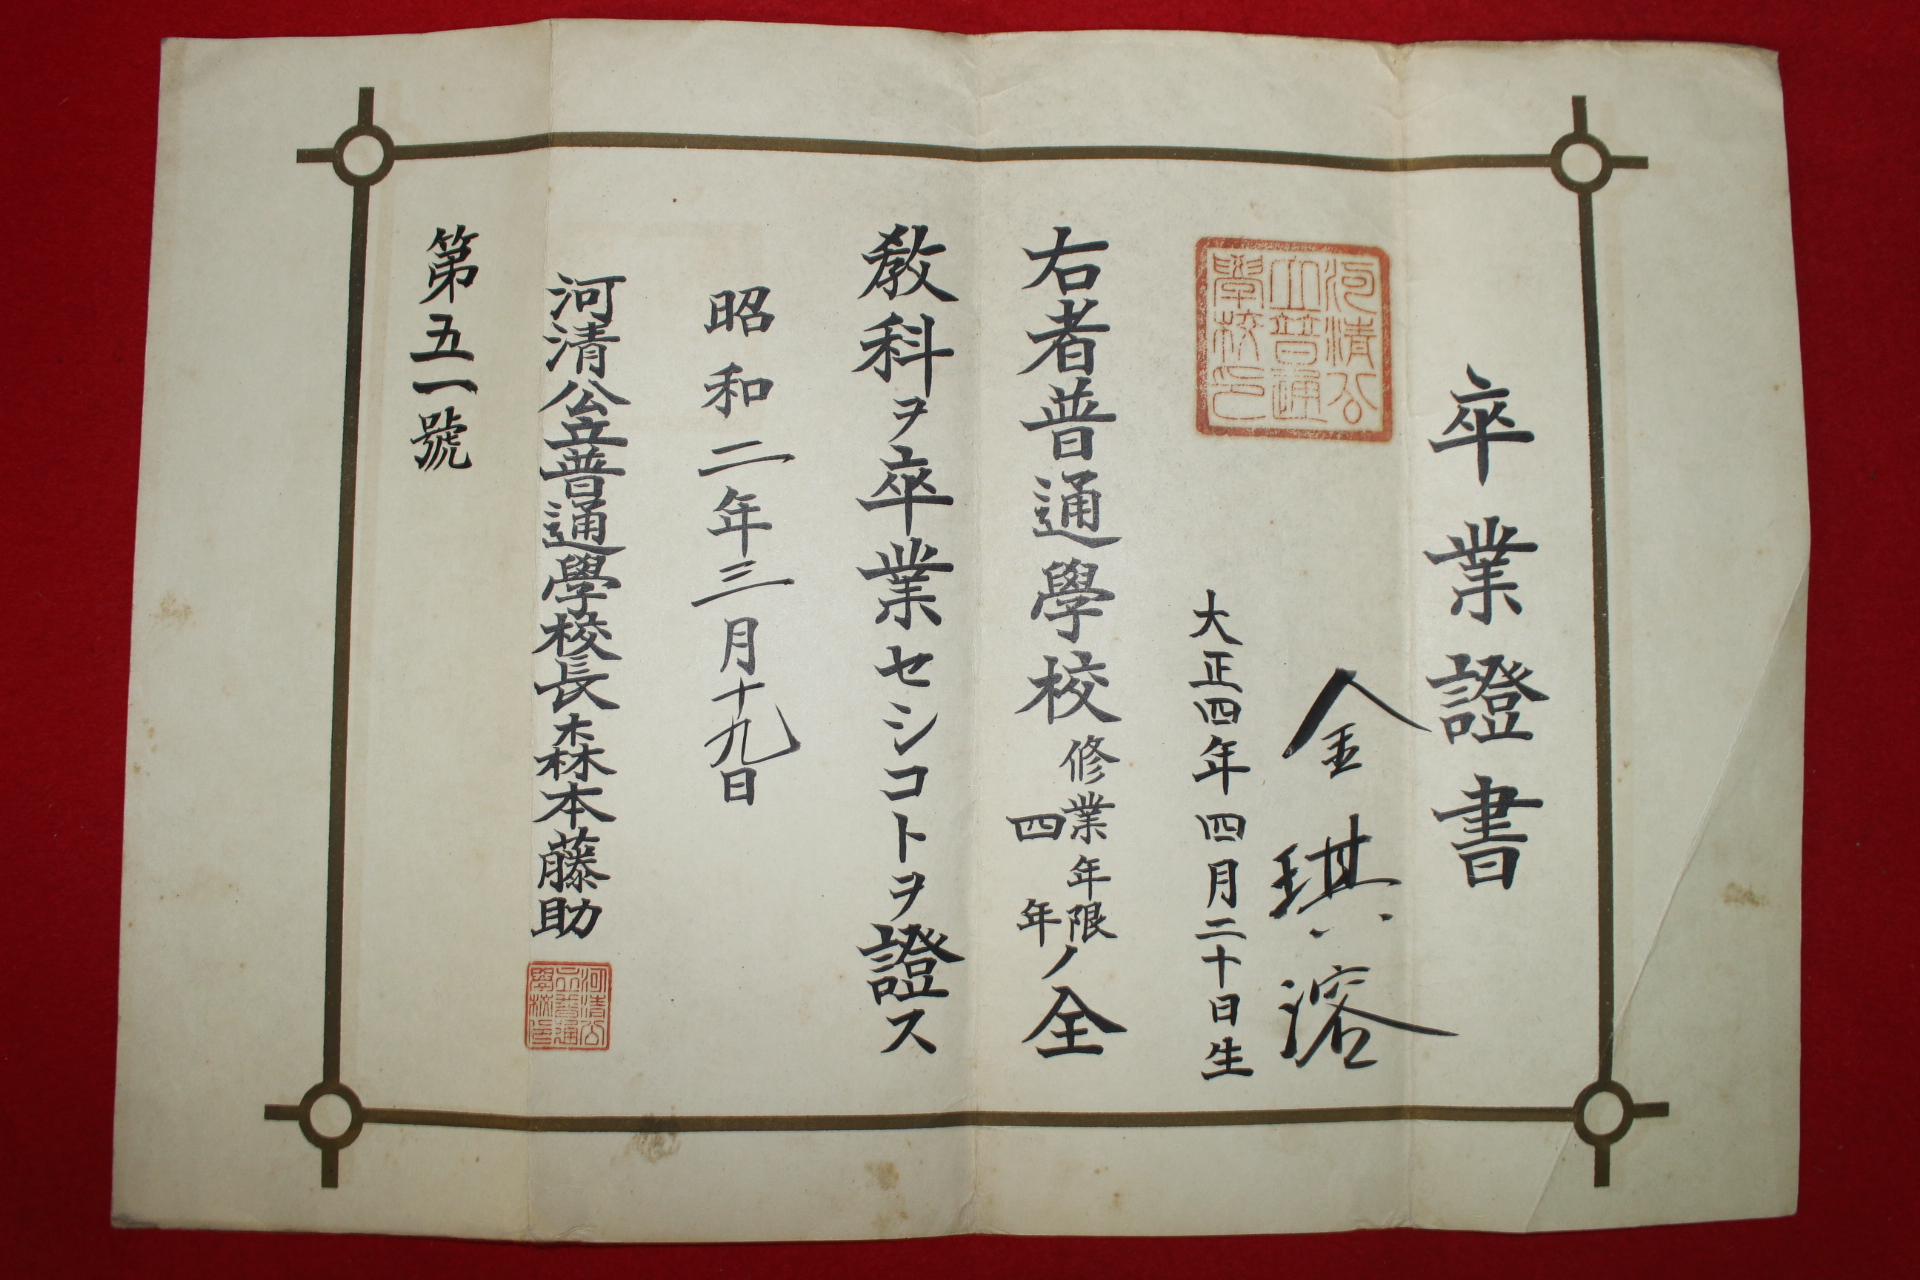 卒業證書
金琪溶
大正四年四月二十日生
河清公立普通學校印
右者普通學校修業年限四年ノ全
敎科ヲ卒業セシコトヲ證ス
昭和二年三月十九日
河清公立普通學校長森本藤助
河清公立普通學校印
第五一號